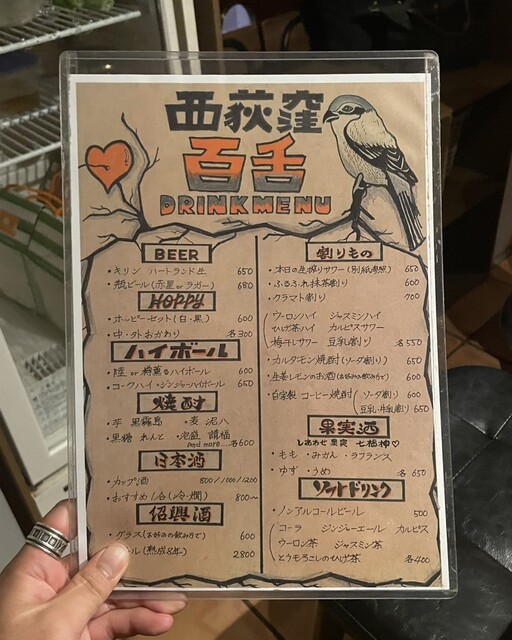 西荻窪
百舌
DRINK MENU
BEER
・キリン ハートランド生 650
・瓶ビール(赤星 or ラガー) 680
HOPPY
・ホッピーセット(白・黒) 600
・中・外おかわり 各300
ハイボール
・陸 or 角 ハイボール 600
・コークハイ・ジンジャーハイボール 650
焼酎
・芋 黒霧島 ・麦 泥八
・黒糖 れんと ・泡盛 請福
and more... 各600
日本酒
・カップ酒 800/1000/1200
・おすすめ1合(冷・燗) 800〜
紹興酒
・グラス(お好みの飲み方で) 600
ル(熟成8年) 2800
割りもの
・本日の生搾りサワー(別紙参照) 650
・ふるふれ抹茶割り 600
・クラマト割り 700
ウーロンハイ ジャスミンハイ
ひげ茶ハイ カルピスサワー
梅干しサワー 豆乳割り 各550
・カルダモン焼酎(ソーダ割り) 650
・生姜レモンのお酒(お好みの飲み方で) 600
・自家製 コーヒー焼酎 ソーダ割り 600
豆乳・牛乳割り 650
果実酒
しあわせ果実 七福神♡
・もも ・みかん ・ラフランス
・ゆず ・うめ 各650
ソフトドリンク
・ノンアルコールビール 500
コーラ ジンジャーエール カルピス
ウーロン茶 ジャスミン茶
とうもろこしのひげ茶 各400